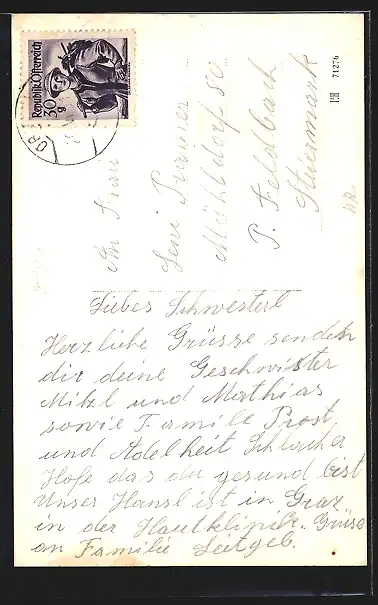 Republik Österreich
30 g
EH 71276
An Frau
Leni
Mühldorf 80
P. Feldbach
Steiermark
Liebes Schwesterl
Herzliche Grüsse senden
dir deine Geschwister
Mitzl und Mathias
sowie Familie Prost
und Adelheit
Hofe das du gesund bist
Unser Hansl ist in Graz
in der Hautklinik. Grüse
an Familie Leitgeb.